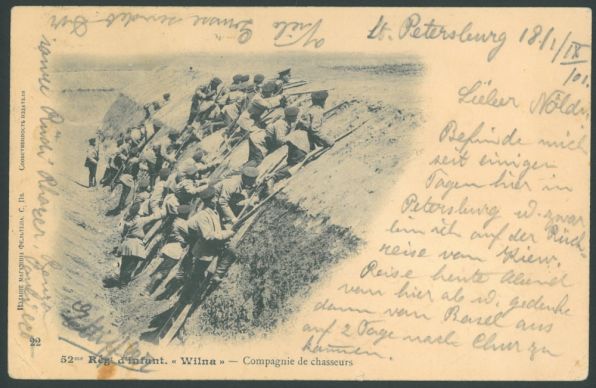 St. Petersburg 18/1/IX/01.
Lieber Nöldi,
Befinde mich
seit einigen
Tagen hier in
Petersburg u. zwar
bin ich auf der Rück-
reise vom Kiew.
Reise heute Abend
von hier ab u. gedenke
dann von Basel aus
auf 2 Tage nach Chur zu
kommen.
Viele Grüsse sendet Dir
Изданіе магазина Фельтена. С. Пб. Собственность издателя
22
52me Rég. d'infant. « Wilna » — Compagnie de chasseurs